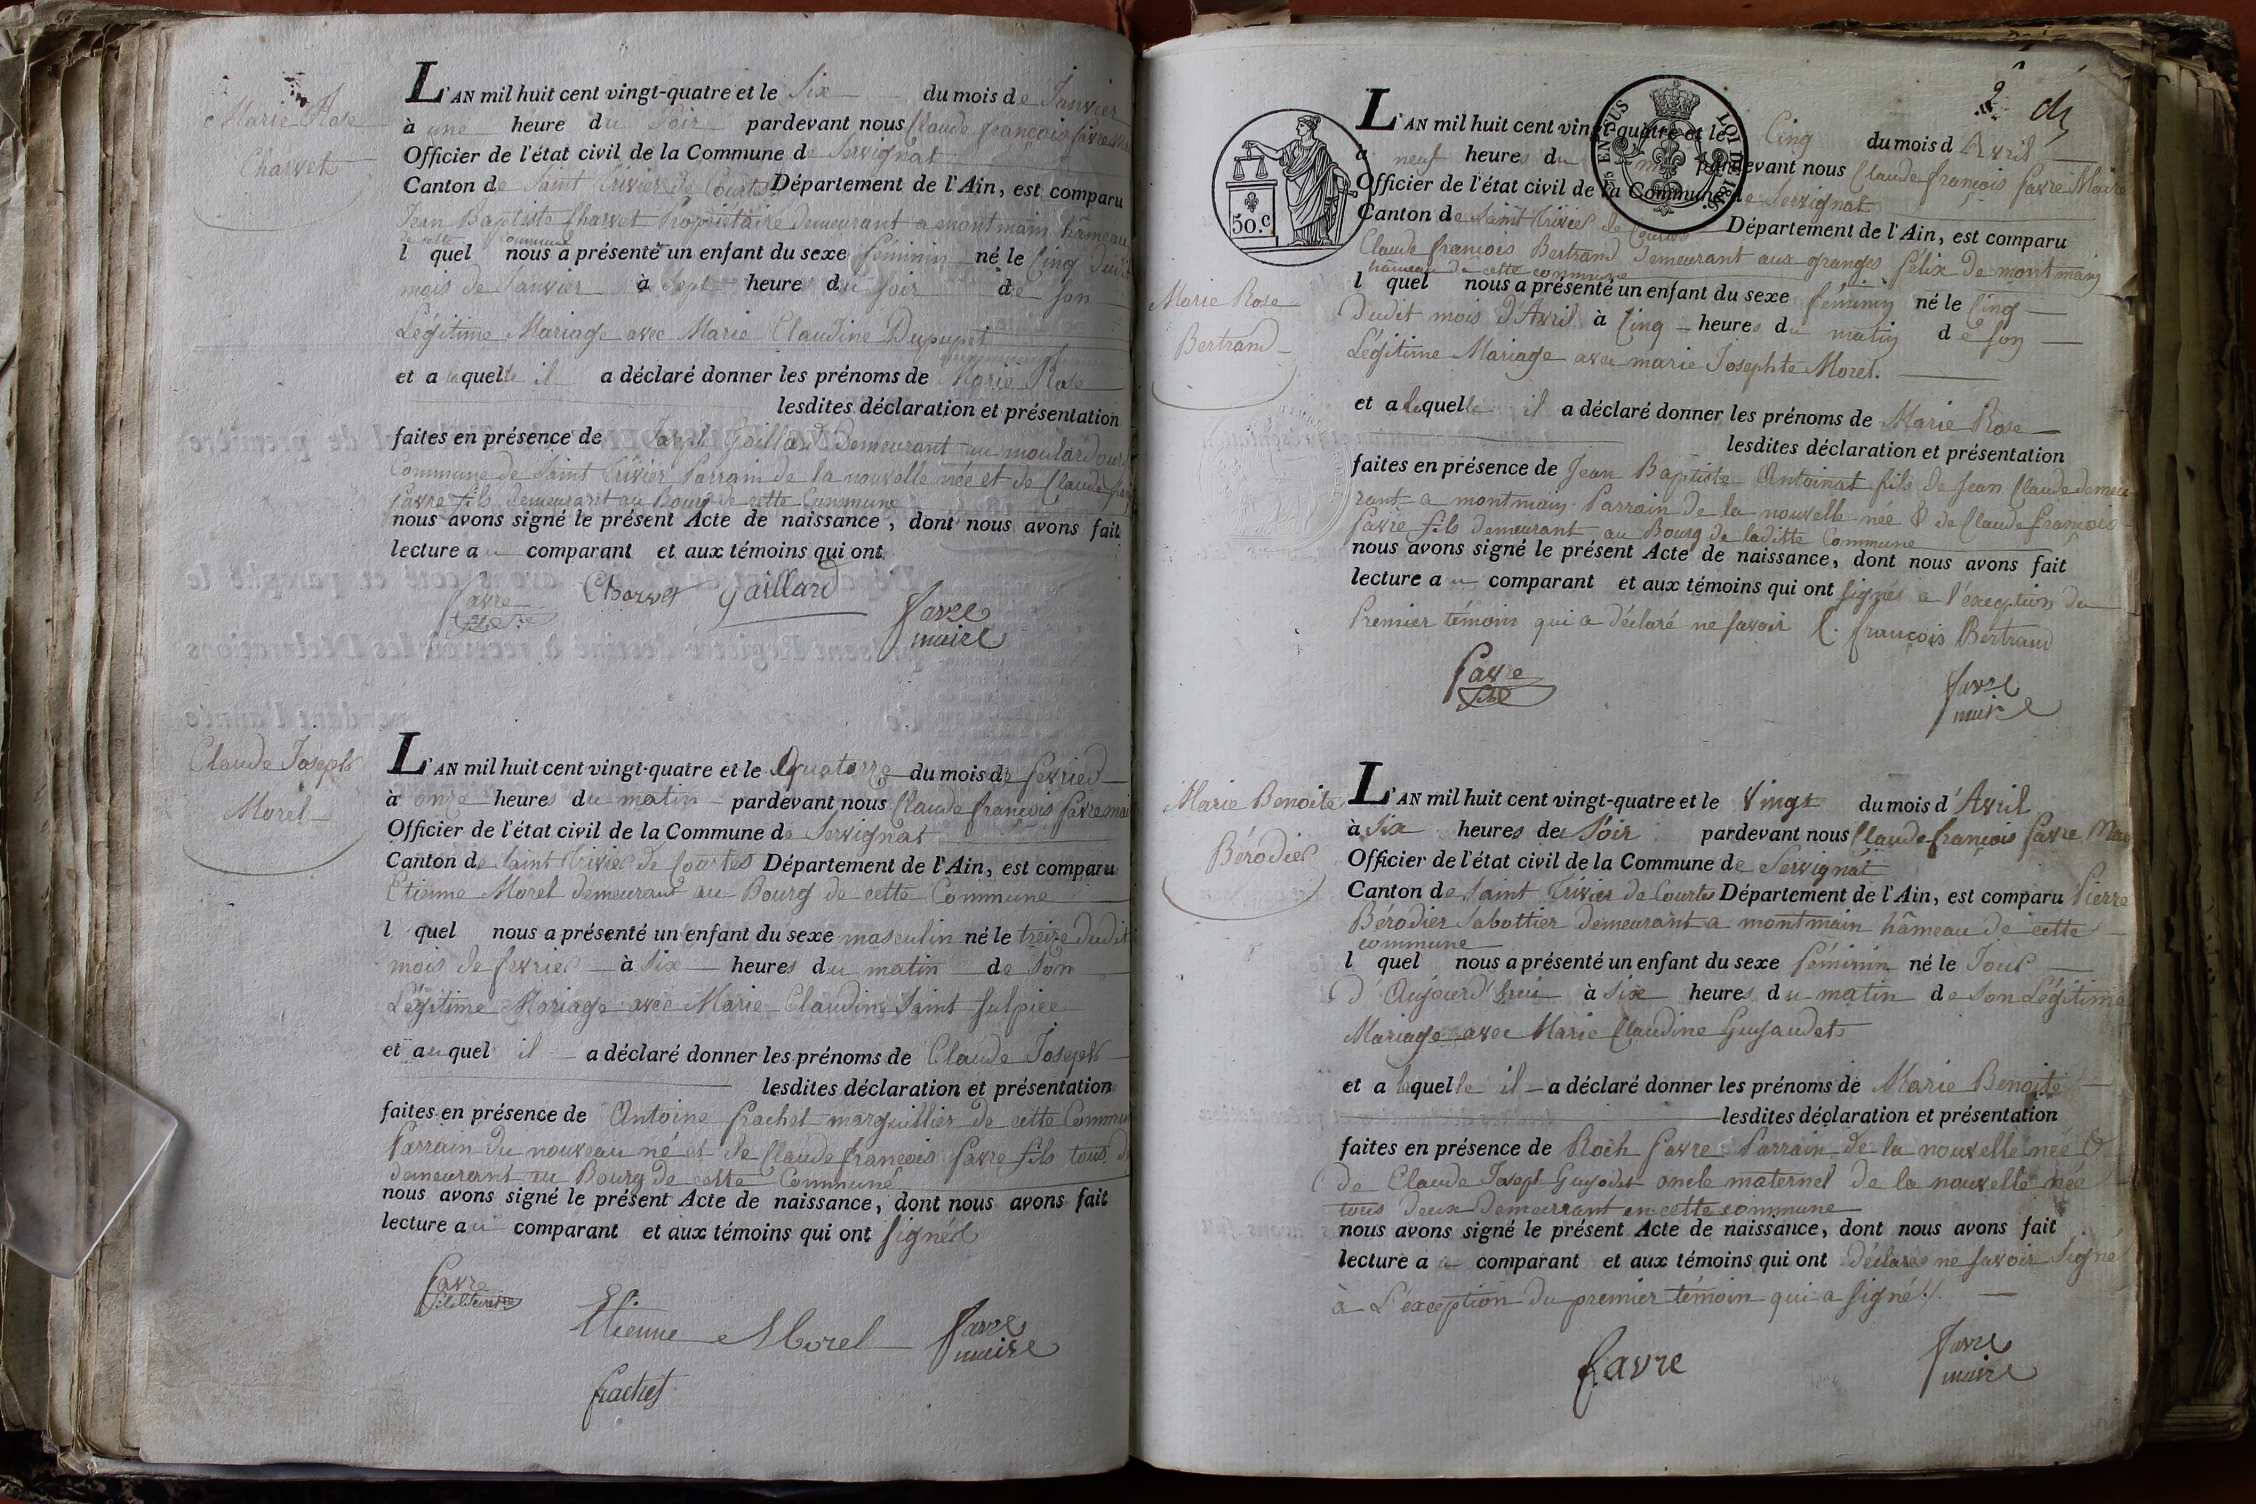 Marie Rose
Charvet
L'AN mil huit cent vingt-quatre et le Six du mois de Janvier
à une heure du Soir pardevant nous Claude françois favre
Officier de l'état civil de la Commune de Servignat
Canton de Saint Trivier de Courtes Département de l'Ain, est comparu
Jean Baptiste Charvet Propriétaire demeurant a montmain hâmeau
de cette commune
l quel nous a présenté un enfant du sexe féminin né le Cinq dudit
mois de Janvier à Sept heure du soir de son
Légitime Mariage avec Marie Claudine Dupupet
et a laquelle il a déclaré donner les prénoms de Marie Rose
lesdites déclaration et présentation
faites en présence de Joseph Gaillard Demeurant au
Commune de Saint Trivier Parrain de la nouvelle née et de Claude
favre fils demeurant au Bourg de cette Commune
nous avons signé le présent Acte de naissance, dont nous avons fait
lecture au comparant et aux témoins qui ont
favre Charvet Gaillard favre
maire
Claude Joseph
Morel
L'AN mil huit cent vingt-quatre et le Quatorze du mois de fevrier
à onze heures du matin pardevant nous Claude françois favre
Officier de l'état civil de la Commune de Servignat
Canton de Saint Trivier de Courtes Département de l'Ain, est comparu
Etienne Morel demeurant au Bourg de cette Commune
l quel nous a présenté un enfant du sexe masculin né le treize dudit
mois de fevrier à six heures du matin de son
Légitime Mariage avec Marie Claudine Saint Sulpice
et auquel il a déclaré donner les prénoms de Claude Joseph
lesdites déclaration et présentation
faites en présence de Antoine frachet marguillier de cette
Parrain du nouveau né et de Claude françois favre fils tous
demeurant au Bourg de cette Commune
nous avons signé le présent Acte de naissance, dont nous avons fait
lecture au comparant et aux témoins qui ont signés
favre
Etienne Morel favre
maire
frachet
2
50.c
EN SUS
LOI DE 1816.
Marie Rose
Bertrand
L'AN mil huit cent vingt-quatre et le Cinq du mois d'Avril
a neuf heures du pardevant nous Claude françois favre Maire
Officier de l'état civil de la Commune de Servignat
Canton de Saint Trivier de Courtes Département de l'Ain, est comparu
Claude françois Bertrand demeurant aux granges felix de montmain
hâmeau de cette commune
l quel nous a présenté un enfant du sexe féminin né le Cinq
dudit mois d'Avril à Cinq heures du matin de son
Légitime Mariage avec marie Josephte Morel.
et a laquelle il a déclaré donner les prénoms de Marie Rose
lesdites déclaration et présentation
faites en présence de Jean Baptiste Antoinat fils de Jean Claude demeu
rant a montmain Parrain de la nouvelle née & de Claude françois
favre fils demeurant au Bourg de laditte Commune
nous avons signé le présent Acte de naissance, dont nous avons fait
lecture au comparant et aux témoins qui ont signés a l'éxception du
Premier témoin qui a déclaré ne savoir C. françois Bertrand
favre
fils
favre
maire
Marie Benoite
Bérodier
L'AN mil huit cent vingt-quatre et le Vingt du mois d'Avril
à Six heures de Soir pardevant nous Claude françois favre
Officier de l'état civil de la Commune de Servignat
Canton de Saint Trivier de Courtes Département de l'Ain, est comparu Pierre
Bérodier Sabottier demeurant a montmain hâmeau de cette
commune
l quel nous a présenté un enfant du sexe féminin né le Jour
d'Aujourd'huí à six heures du matin de son Légitime
Mariage avec Marie Claudine Guyaudet
et a laquelle il a déclaré donner les prénoms de Marie Benoite
lesdites déclaration et présentation
faites en présence de Roch favre Parrain de la nouvelle née &
de Claude Joseph Guyodet oncle maternel de la nouvelle née
tous deux Demeurant en cette commune
nous avons signé le présent Acte de naissance, dont nous avons fait
lecture au comparant et aux témoins qui ont déclarés ne savoir Signé
à L'éxception du premier témoin qui a signé
favre
favre
maire